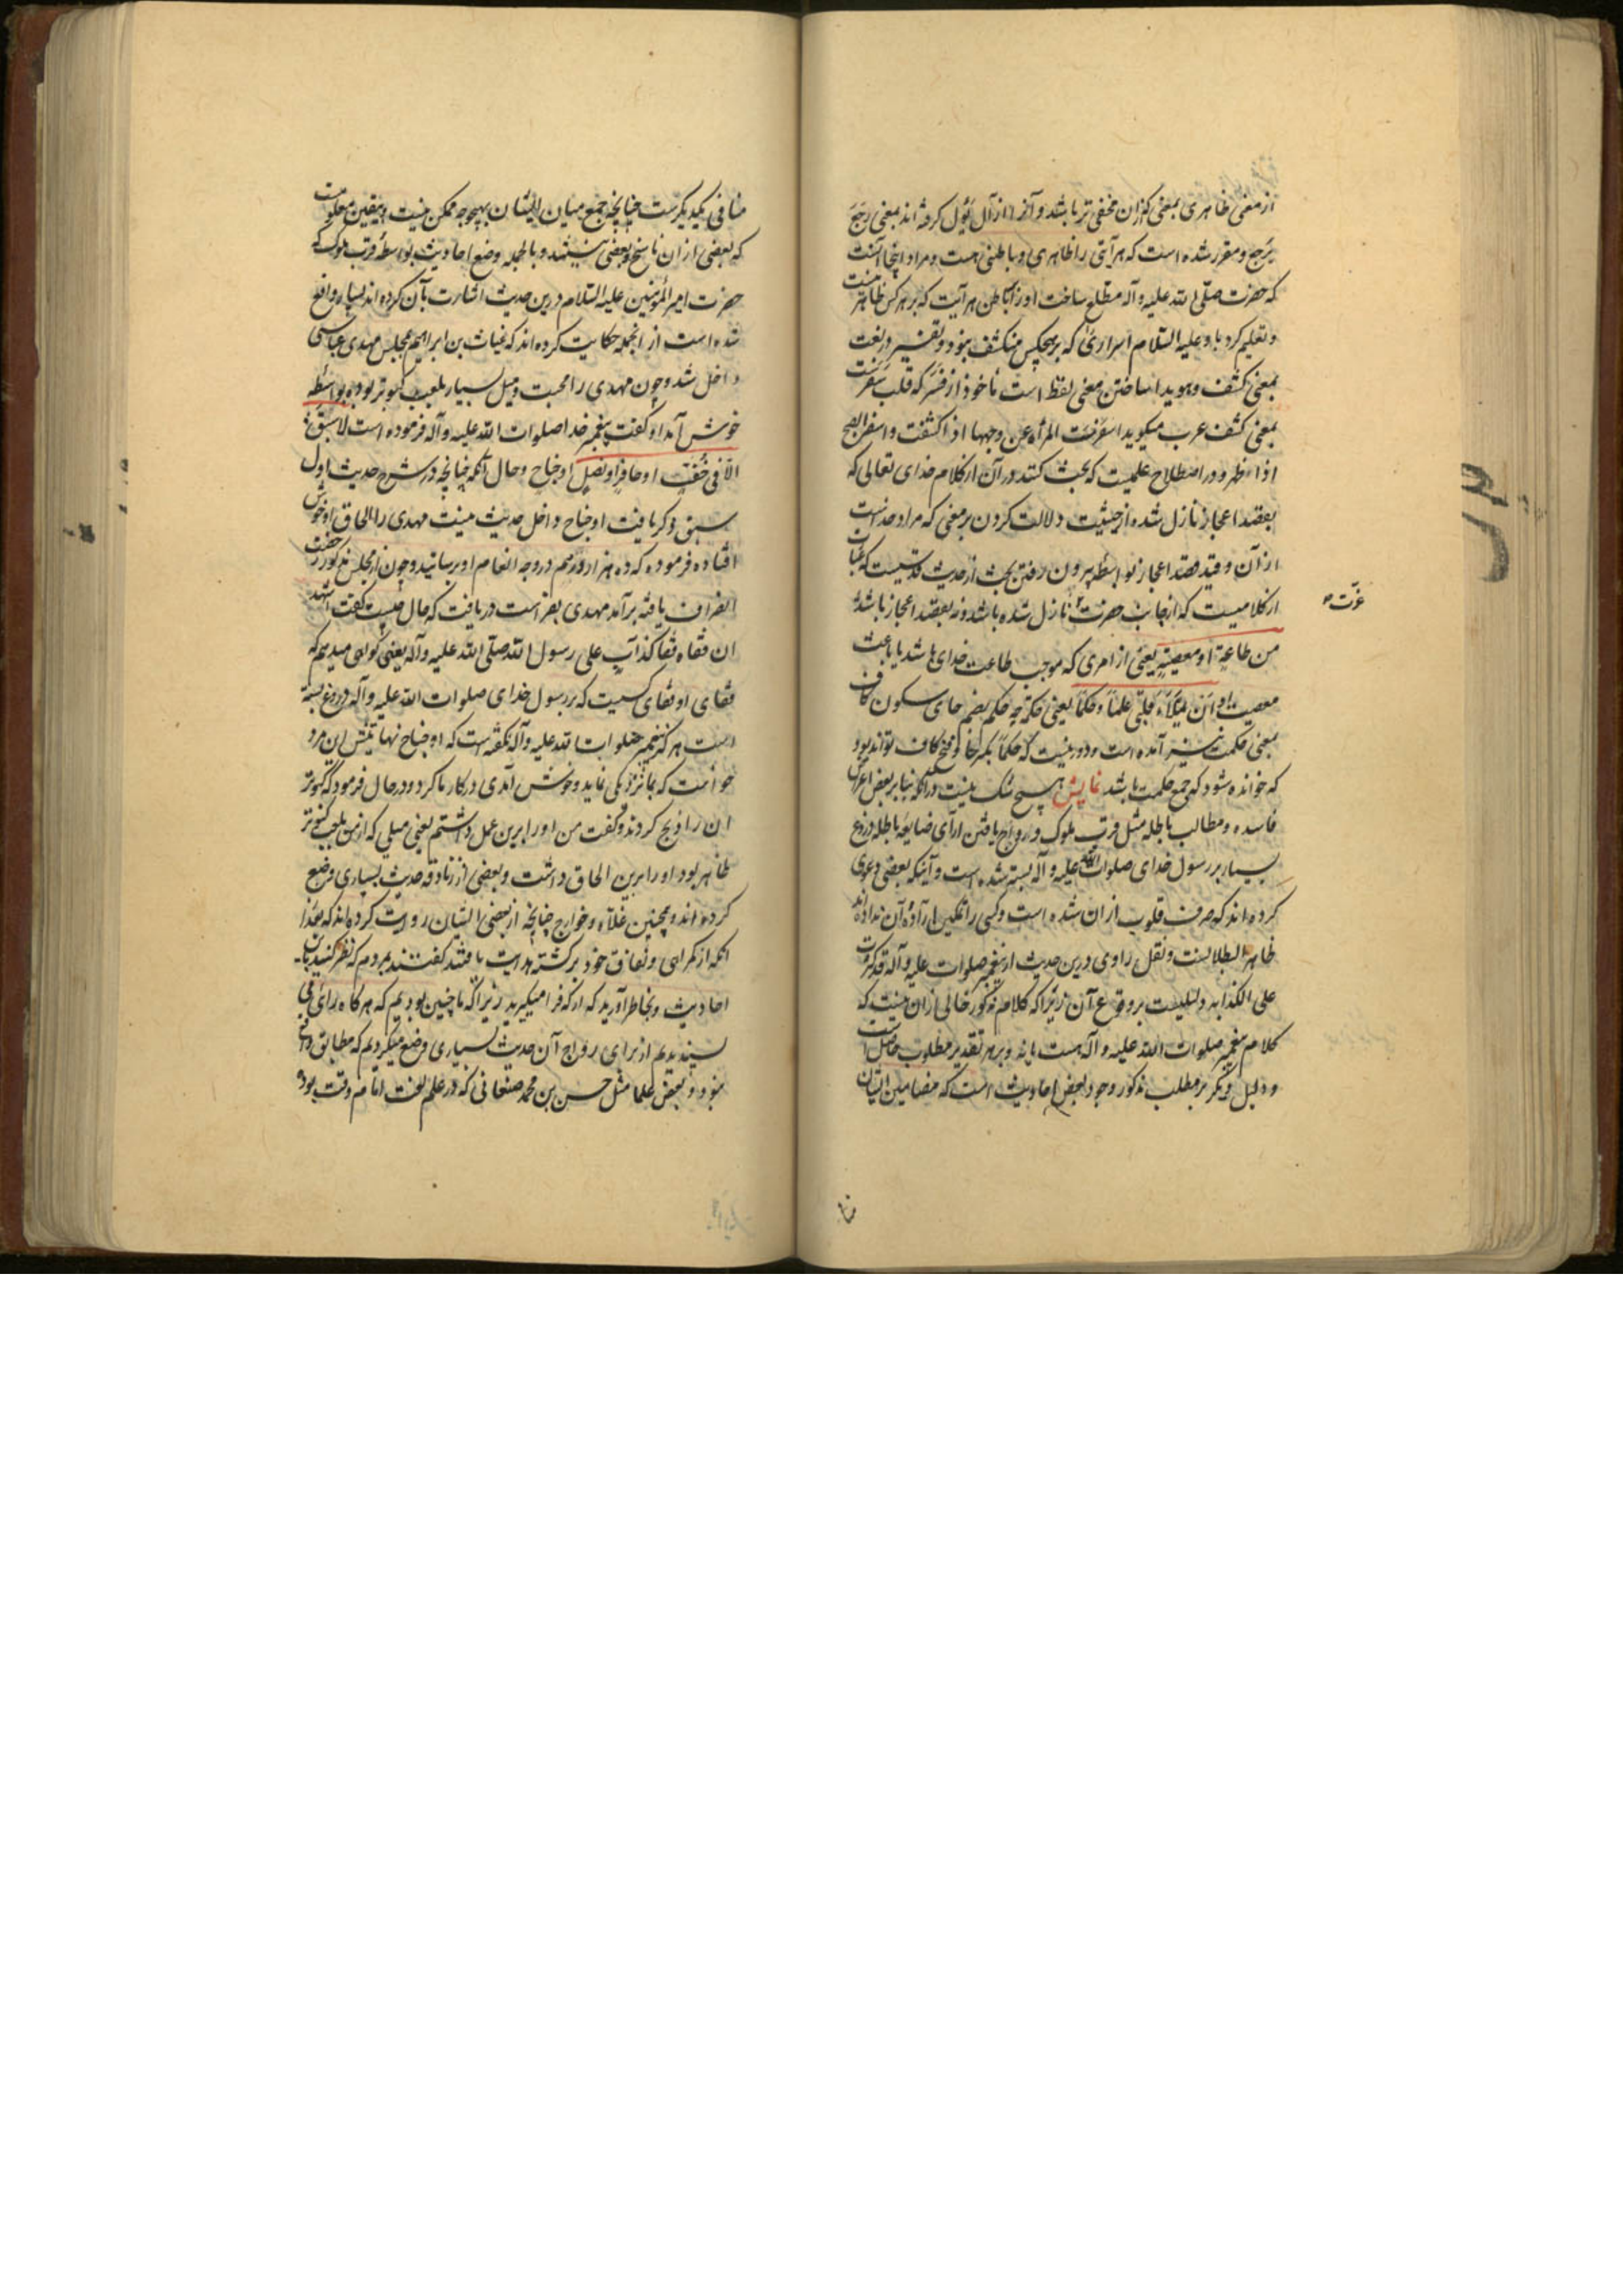 از معنی ظاهری بمعنی که ازان مخفی تر باشد و آنرا از آل یؤل گرفته اند بمعنی رجع
یرجع و مقرر شده است که هر آیتی را ظاهری و باطنی هست و مراد اینجا آنست
که حضرت صلی الله علیه وآله مطلع ساخت اورا بباطن هر آیت که بر هر کس ظاهر نیست
و تعلیم کرد باو علیه السلام اسراری که بر هیچکس منکشف نبود و تفسیر در لغت
بمعنی کشف و هویدا ساختن معنی لفظ است ماخوذ از فسر که قلب سفر است
بمعنی کشف عرب میگوید اسفرت المرأه عن وجهها اذا کشفت و اسفر الصبح
اذا ظهر و در اصطلاح علمیست که بحث کنند در آن از کلام خدای تعالی که
بقصد اعجاز نازل شده از حیثیت دلالت کردن بر معنی که مراد خداست
از آن و قید قصد اعجاز بواسطه بیرون رفتن بحث از حدیث قدسیست که عبارت
از کلامیست که از جانب حضرت نازل شده باشد و نه بقصد اعجاز باشد
عزت
من طاعة او معصیة یعنی از امری که موجب طاعت خدای باشد یا باعث
معصیت او ان یملأ قلبی علما و حکما یعنی حکمة چه حکم بضم حای سکون کاف
بمعنی حکمت نیز آمده است و دور نیست که حکما بکسر حا و فتح کاف تواند بود
که خوانده شود که جمع حکمت باشد نمایش هیچ شک نیست در آنکه بنابر بعض اغراض
فاسده و مطالب باطله مثل قرب ملوک و رواج یافتن آرای ضایعه باطله دروغ
بسیار بر رسول خدای صلوات الله علیه وآله بسته شده است و آنیکه بعضی دعوی
کرده اند که صرف قلوب ازان شده است و کسی را تمکین اراده آن نداده اند
ظاهر البطلانست و نقل راوی درین حدیث از پیغمبر صلوات علیه وآله قد کثرت
علی الکذابه دلیلیست بر وقوع آن زیرا که کلام مذکور خالی ازان نیست که
کلام پیغمبر صلوات الله علیه وآله هست یا نه و بر هر تقدیر مطلوب حاصل است
و دلیل دیگر بر مطلب مذکور وجود بعض احادیث است که مضامین ایشان
منا
منافی یکدیگرست چنانچه جمع میان ایشان بهیچوجه ممکن نیست و بیقین معلومست
که بعضی ازان ناسخ و بعضی نیستند و بالجمله وضع احادیث بواسطه قرب ملوک که
حضرت امیر المؤمنین علیه السلام درین حدیث اشارت بآن کرده اند بسیار واقع
شده است از انجمله حکایت کرده اند که غیاث بن ابراهیم بمجلس مهدی عباسی
داخل شد و چون مهدی را محبت و میل بسیار بلعب کبوتر بود بواسطه
خوش آمد او گفت پیغمبر خدا صلوات الله علیه وآله فرموده است لا سبق
الا فی خف او حافر او نصل او جناح و حال آنکه چنانچه در شرح حدیث اول
سبق ذکر یافت او جناح داخل حدیث نیست مهدی را الحاق او خوش
افتاده فرموده که ده هزار درهم در وجه انعام او برسانید و چون از مجلس مذکور رخصت
انصراف یافته برآمد مهدی بفراست دریافت که حال چیست گفت اشهد
ان قفاه قفا کذاب علی رسول الله صلی الله علیه وآله یعنی گواهی میدهم که
قفای او قفای کسیست که بر رسول خدای صلوات الله علیه وآله دروغ بسته
است هرگز پیغمبر صلوات الله علیه وآله نگفته است که او جناح نهایتش این مرد
خواست که بما نزدیکی نماید و خوش آمدی در کار ما کرد و در حال فرمود که کبوتر
ان را ذبح کردند و گفت من اورا برین عمل داشتم یعنی میلی که از من بلعب کبوتر
ظاهر بود اورا برین الحاق داشت و بعضی از زنادقه حدیث بسیاری وضع
کرده اند و همچنین غلاة و خوارج چنانچه از بعضی ایشان روایت کرده اند که بعد از
آنکه از گمراهی و نفاق خود برگشته هدایت یافتند گفتند بمردم که نظر کنید باین
احادیث و بخاطر آورید که از که فرا میگیرید زیرا که ما چنین بودیم که هرگاه رای می
پسندیدیم از برای رواج آن حدیث بسیاری وضع میکردیم که مطابق واقع
نبود و بعض علما مثل حسن بن محمد صنعانی که در علم لغت امام وقت بود